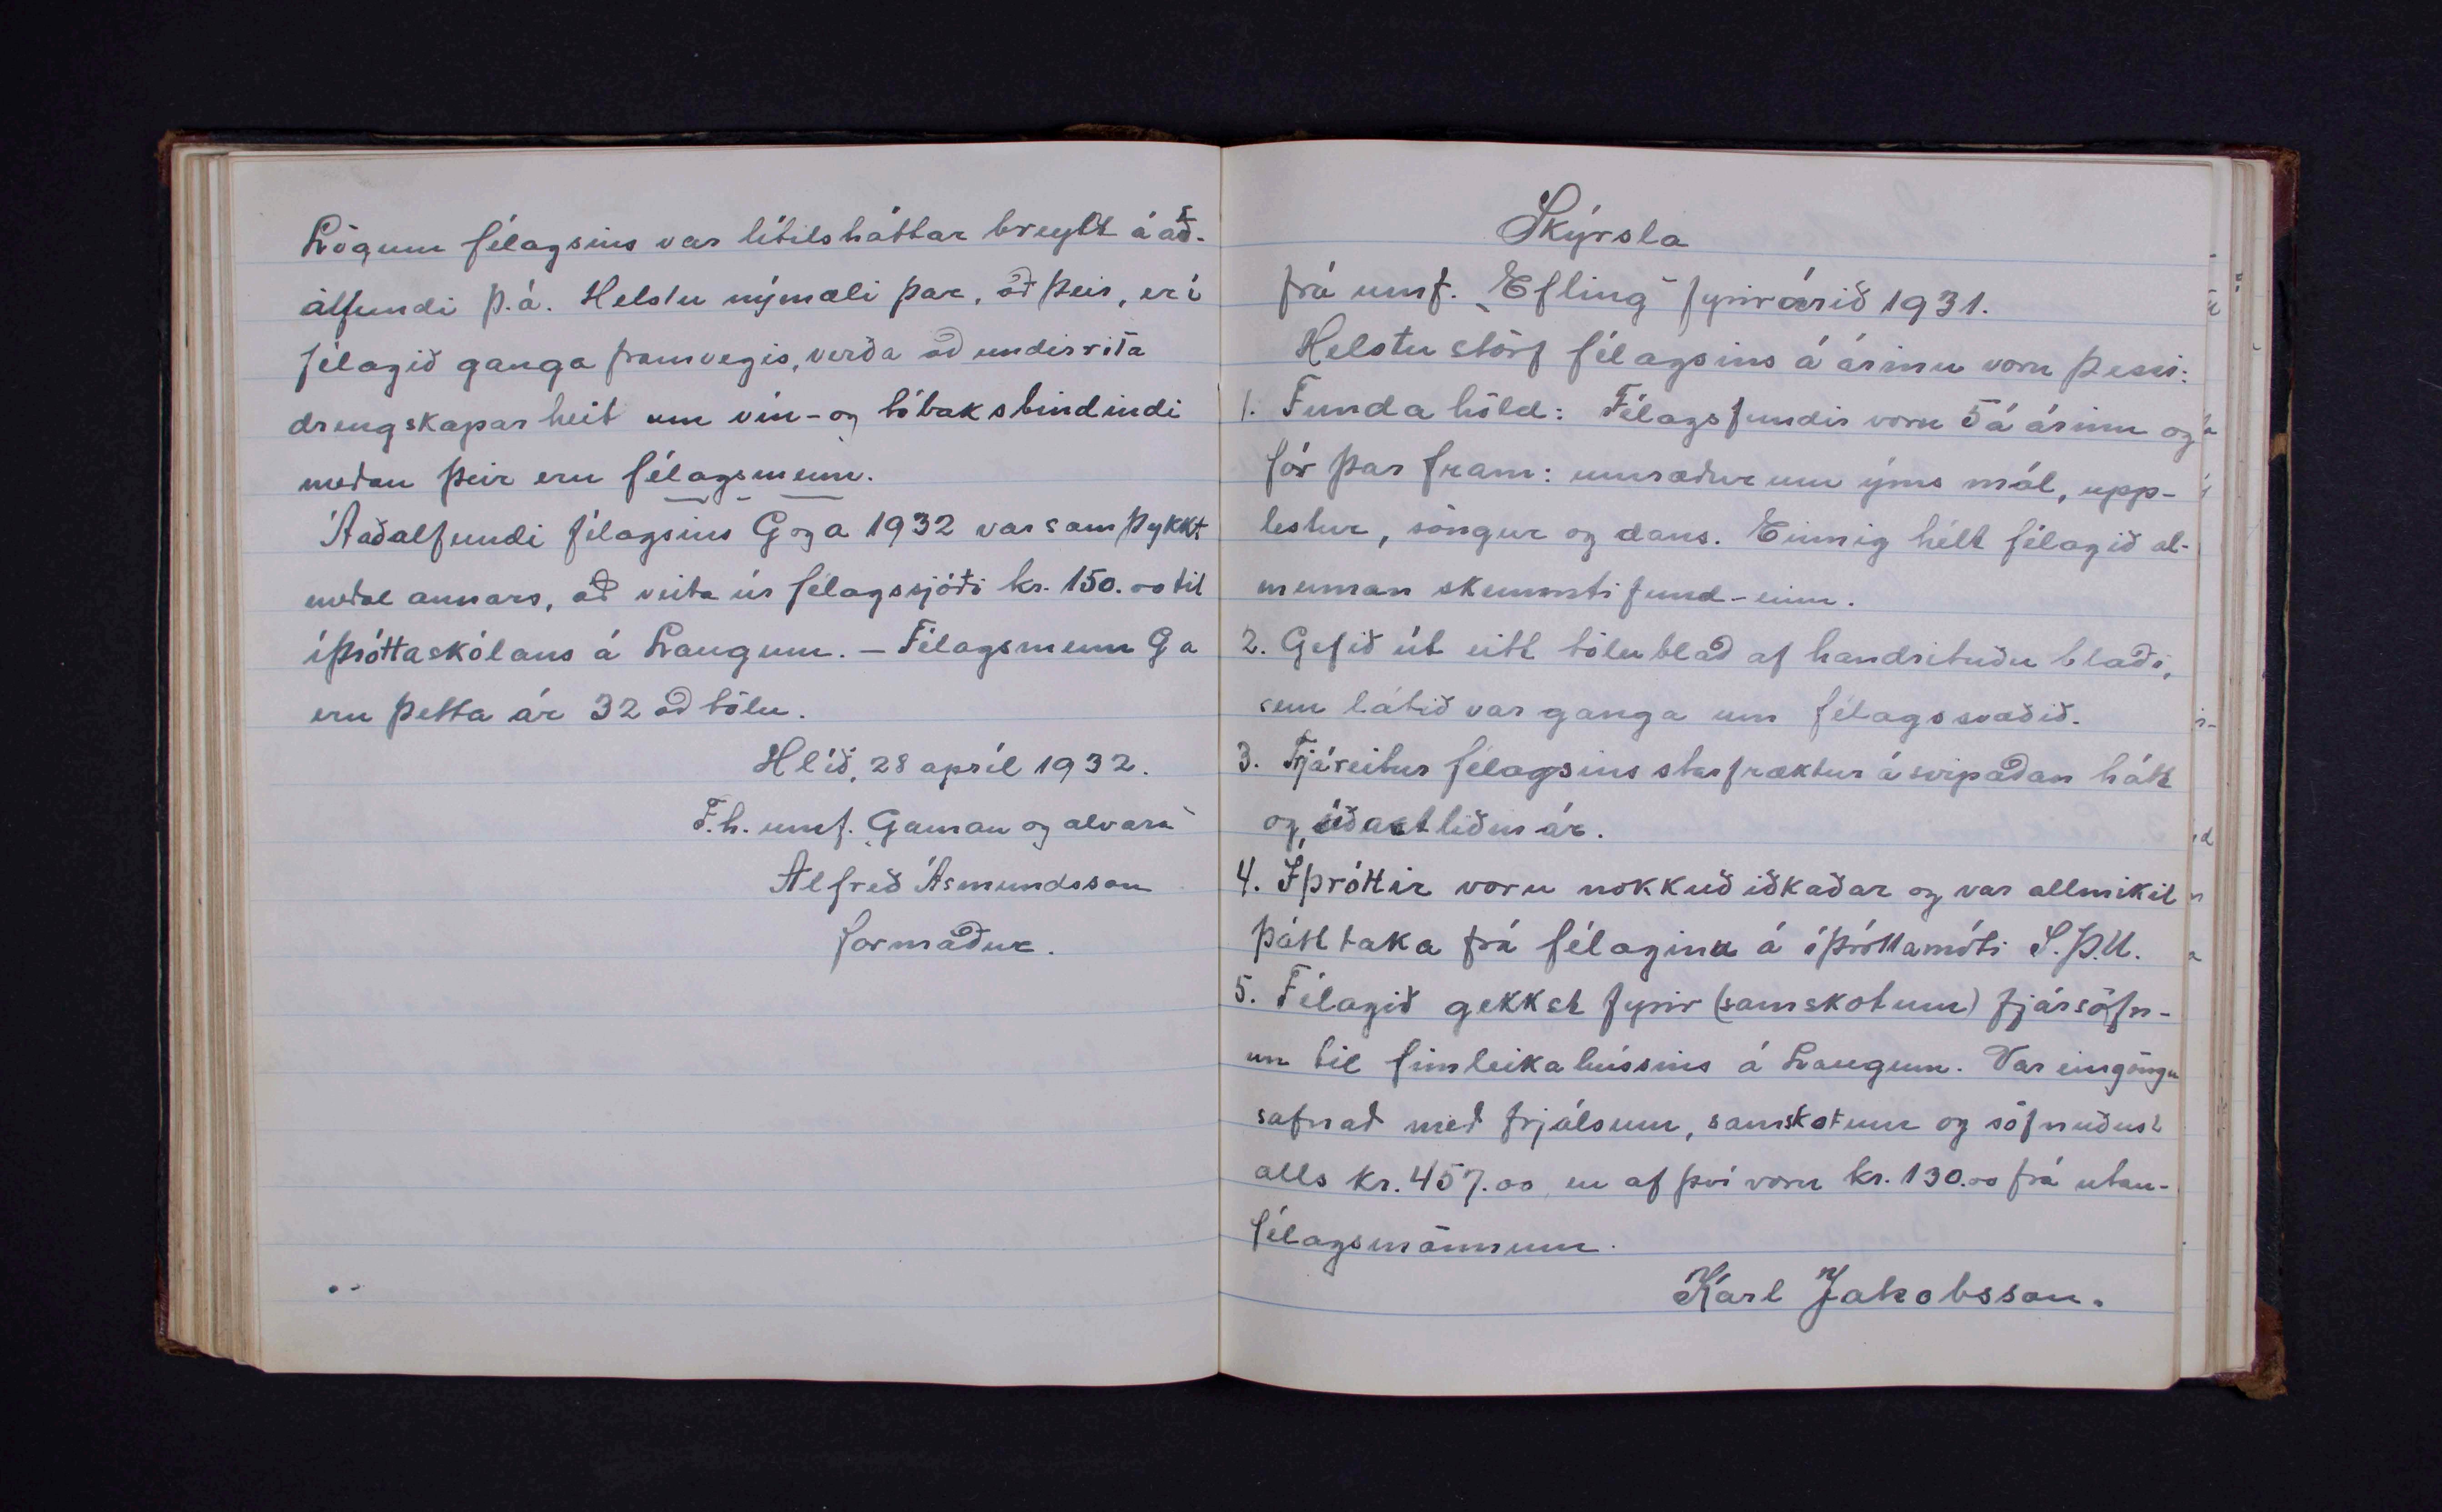 Lögum félagsins var lítilsháttar breytt á að-
alfundi þ.á. Helstu nýmæli þar, að þeir, er í
félagið ganga framvegis, verða að undirrita
drengskaparheit um vín- og tóbaksbindindi
meðan þeir eru félagsmenn.
Á aðalfundi félagsins G og a 1932 var samþykkt
meðal annars, að veita úr félagssjóði kr. 150.00 til
íþróttaskólans á Laugum. - Félagsmenn G a
eru þetta ár 32 að tölu.
Hlíð, 28 apríl 1932.
F.h. umf. „Gaman og alvara"
Alfreð Ásmundsson
formaður.
Skýrsla
frá umf. „Efling" fyrir árið 1931.
Helstu störf félagsins á árinu voru þessi:
1. Fundahöld: Félagsfundir voru 5 á árinu og
fór þar fram: umræður um ýms mál, upp-
lestur, söngur og dans. Einnig hélt félagið al-
mennan skemmtifund - einn.
2. Gefið út eitt tölublað af handrituðu blaði,
sem látið var ganga um félagssvæðið.
3. Trjáreitur félagsins starfræktur á svipaðan hátt
og síðastliðin ár.
4. Íþróttir voru nokkuð iðkaðar og var allmikil
þátttaka frá félaginu á íþróttamóti S.Þ.U.
5. Félagið gekkst fyrir (samskotum) fjársöfn-
un til fimleikahússins á Laugum. Var eingöngu
safnað með frjálsum, samskotum og söfnuðust
alls kr. 457.00 en af því voru kr. 130.00 frá utan-
félagsmönnum.
Karl Jakobsson.